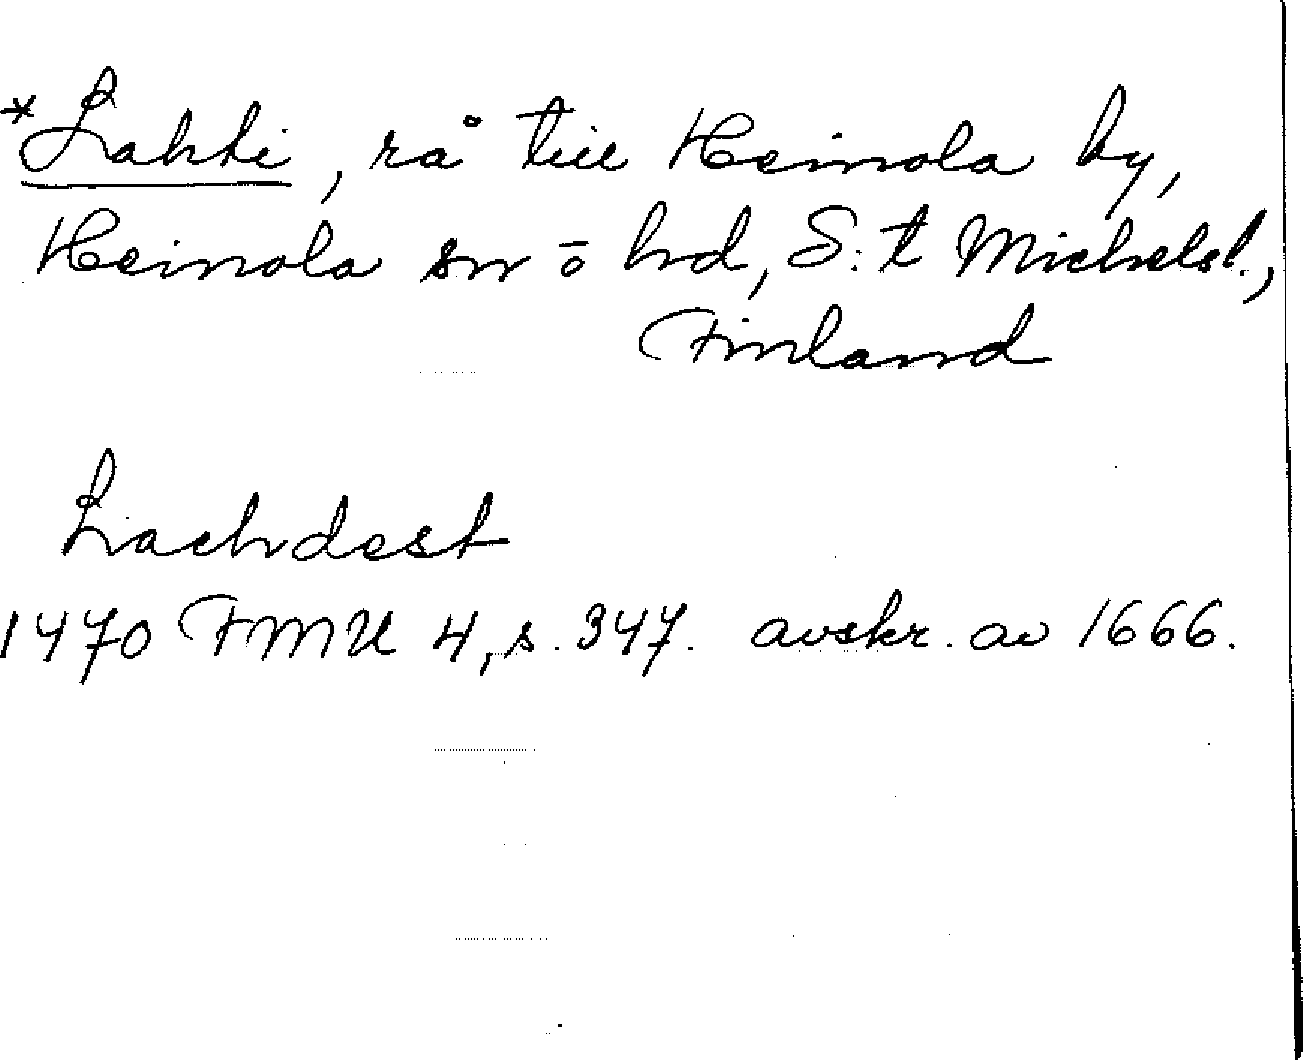 *Lahti, rå till Heinola by,
Heinola sn ō hd, S:t Michelsl.,
Finland
Lachdest
1470 FMU 4, s. 347. avskr. av 1666.